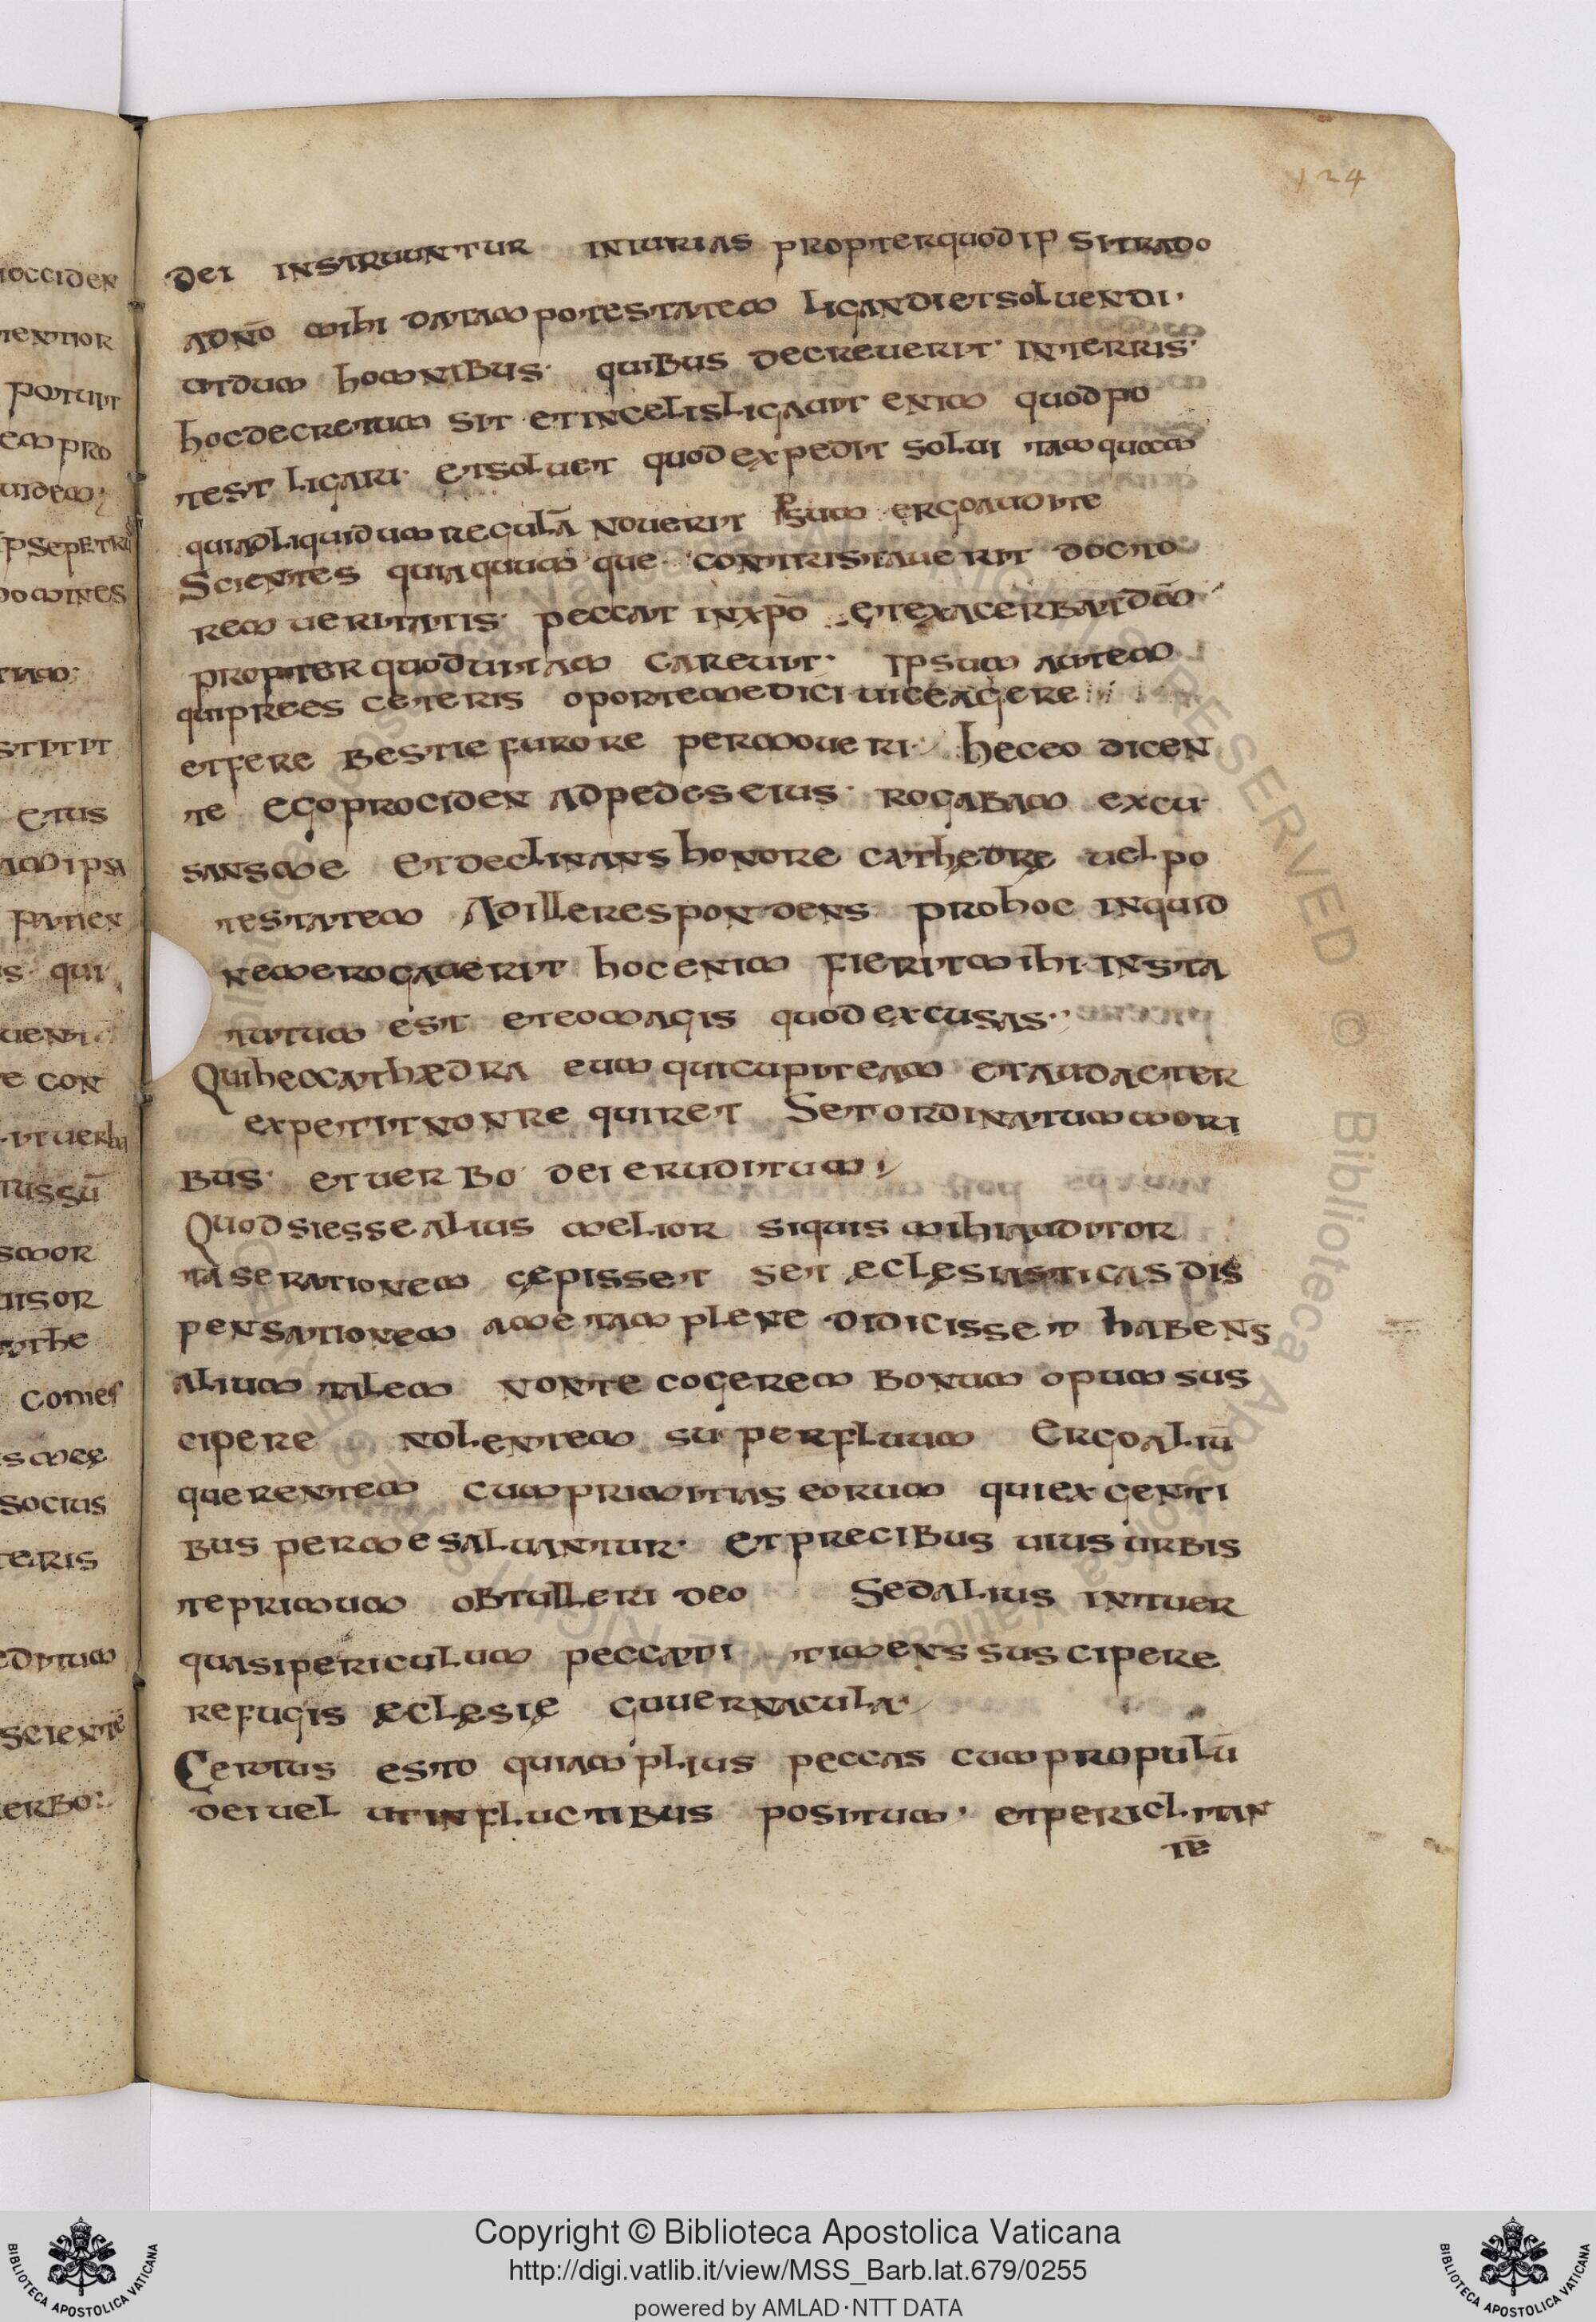 124
dei instruuntur iniurias propterquod ip si trado
adnō mihi datam potestatem ligandi et soluendi·
utdum homnibus· quibus decreuerit· interris·
hoc decretum sit et in celis ligauit enim quod po
test ligari· et soluet quod expedit solui tam quam
qui adliquidum regulā nouerit Psum ergo audite
Scientes quia quum que contristauerit docto
rem ueritatis· peccat in xpō et exacerbat dōm
propter quod uitam careuit· Ipsum autem
qui prees ceteris oportem edici uice agere
et fere bestie furore permoueri· heceo dicen
te Ego prociden ad pedes eius· rogabam excu
sans me Et declinans honore cathedrę uel po
testatem Ad ille respondens pro hoc inquid
ne me rogauerit hoc enim fierit mihi instā
tutum est et eo magis quod excusas·
Qui hec cathædra eum qui cupit eam et audacter
expetit non re quiret Set ordinatum mori
bus· et uerbo dei eruditum
Quod si esse alius melior si quis mihi auditor
tā serationem cępisset set ęclęsiasticas dis
pensationem a me tam plene didicisset habens
alium talem non te cogerem bonum opum sus
cipere nolentem superfluum Ergo aliū
querentem cum primitias eorum qui ex genti
bus per me saluantur· Et precibus uius urbis
te primum obtulleri deo Sed alius intuer
quasi periculum peccati timens suscipere
refugis æclęsię guuernacula·
Certus esto quia mplius peccas cum propulū
dei uel ut in fluctibus positum· et periclitan
tē
occiden
tentior
potuit
em pro
uidem;
ipse petru
homines
tiam·
stitit
eius
am ipsa
patien
s qui
ueni
e con
·ut uerba
iussū
s mor
uisor
cathe
comes
s meę
socius
teris
editum
scientē
erbo:
Copyright © Biblioteca Apostolica Vaticana
http://digi.vatlib.it/view/MSS_Barb.lat.679/0255
powered by AMLAD·NTT DATA
BIBLIOTECA APOSTOLICA VATICANA
BIBLIOTECA APOSTOLICA VATICANA